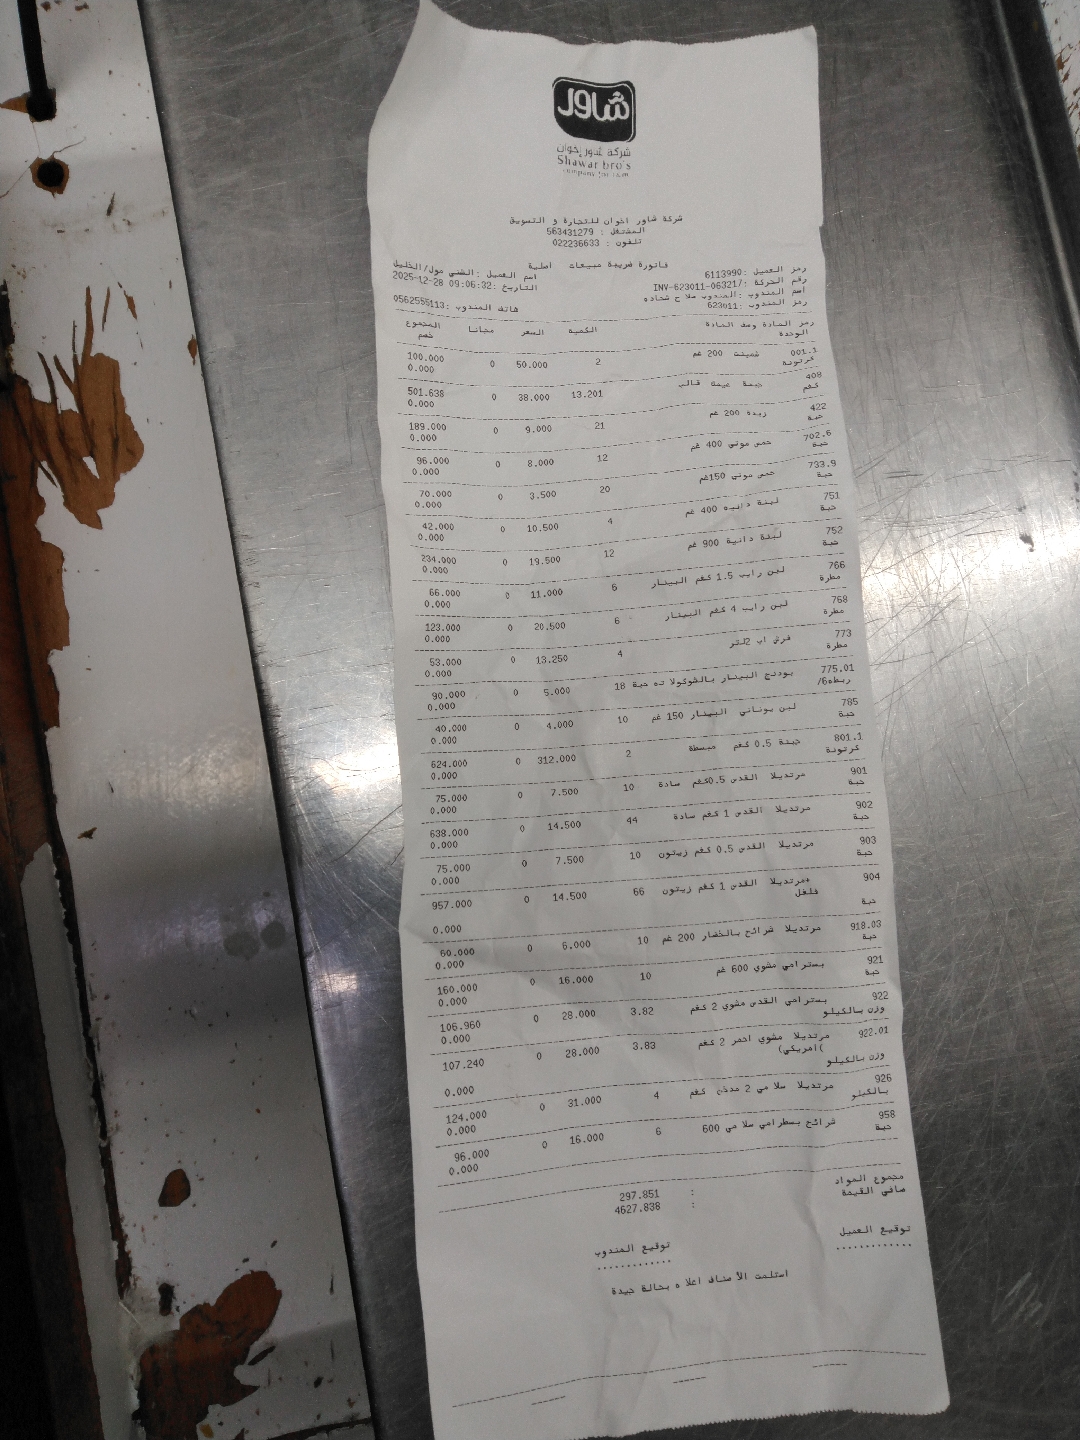 شاور
شركة شاور إخوان
Shawar bro's
شركة شاور اخوان للتجارة و التسويق
المشتغل : 563431279
تلفون : 022236633
فاتورة ضريبة مبيعات أصلية
رمز العميل :6113990 اسم العميل :الشني مول/الخليل
رقم الحركة :INV-623011-063217 التاريخ :09:06:32 2025-12-28
اسم المندوب :المندوب صلا ح شحاده
رمز المندوب :623011 هاتف المندوب :0562555113
رمز المادة وصف المادة الكمية السعر مجانا المجموع
الوحدة خصم
001.1 شمينت 200 غم 2 50.000 0 100.000
كرتونة 0.000
408 جبنة عيمة قالب 13.201 38.000 0 501.638
كغم 0.000
422 زبدة 200 غم 21 9.000 0 189.000
حبة 0.000
702.6 حمص موتي 400 غم 12 8.000 0 96.000
حبة 0.000
733.9 حمص موتي 150غم 20 3.500 0 70.000
حبة 0.000
751 لبنة دانيه 400 غم 4 10.500 0 42.000
حبة 0.000
752 لبنة دانية 900 غم 12 19.500 0 234.000
حبة 0.000
766 لبن رايب 1.5 كغم البينار 6 11.000 0 66.000
مطرة 0.000
768 لبن رايب 4 كغم البينار 6 20.500 0 123.000
مطرة 0.000
773 فرش اب 2لتر 4 13.250 0 53.000
مطرة 0.000
775.01 بودنج البينار بالشوكولا ته حبة 18 5.000 0 90.000
ربطه6/ 0.000
785 لبن يوناني البينار 150 غم 10 4.000 0 40.000
حبة 0.000
801.1 جبنة 0.5 كغم مبسطة 2 312.000 0 624.000
كرتونة 0.000
901 مرتديلا القدس 0.5كغم سادة 10 7.500 0 75.000
حبة 0.000
902 مرتديلا القدس 1 كغم سادة 44 14.500 0 638.000
حبة 0.000
903 مرتديلا القدس 0.5 كغم زيتون 10 7.500 0 75.000
حبة 0.000
904 مرتديلا القدس 1 كغم زيتون+ 66 14.500 0 957.000
فلفل
حبة 0.000
918.03 مرتديلا شرائح بالخضار 200 غم 10 6.000 0 60.000
حبة 0.000
921 بسترامي مشوي 600 غم 10 16.000 0 160.000
حبة 0.000
922 بسترامي القدس مشوي 2 كغم 3.82 28.000 0 106.960
وزن بالكيلو 0.000
922.01 مرتديلا مشوي احمر 2 كغم 3.83 28.000 0 107.240
(امريكي)
وزن بالكيلو 0.000
926 مرتديلا سلا مي 2 مدخن كغم 4 31.000 0 124.000
بالكيلو 0.000
958 شرائح بسطرامي سلا مي 600 6 16.000 0 96.000
حبة 0.000
مجموع المواد : 297.851
صافي القيمة : 4627.838
توقيع العميل توقيع المندوب
............. .............
استلمت الأ صناف اعلا ه بحالة جيدة